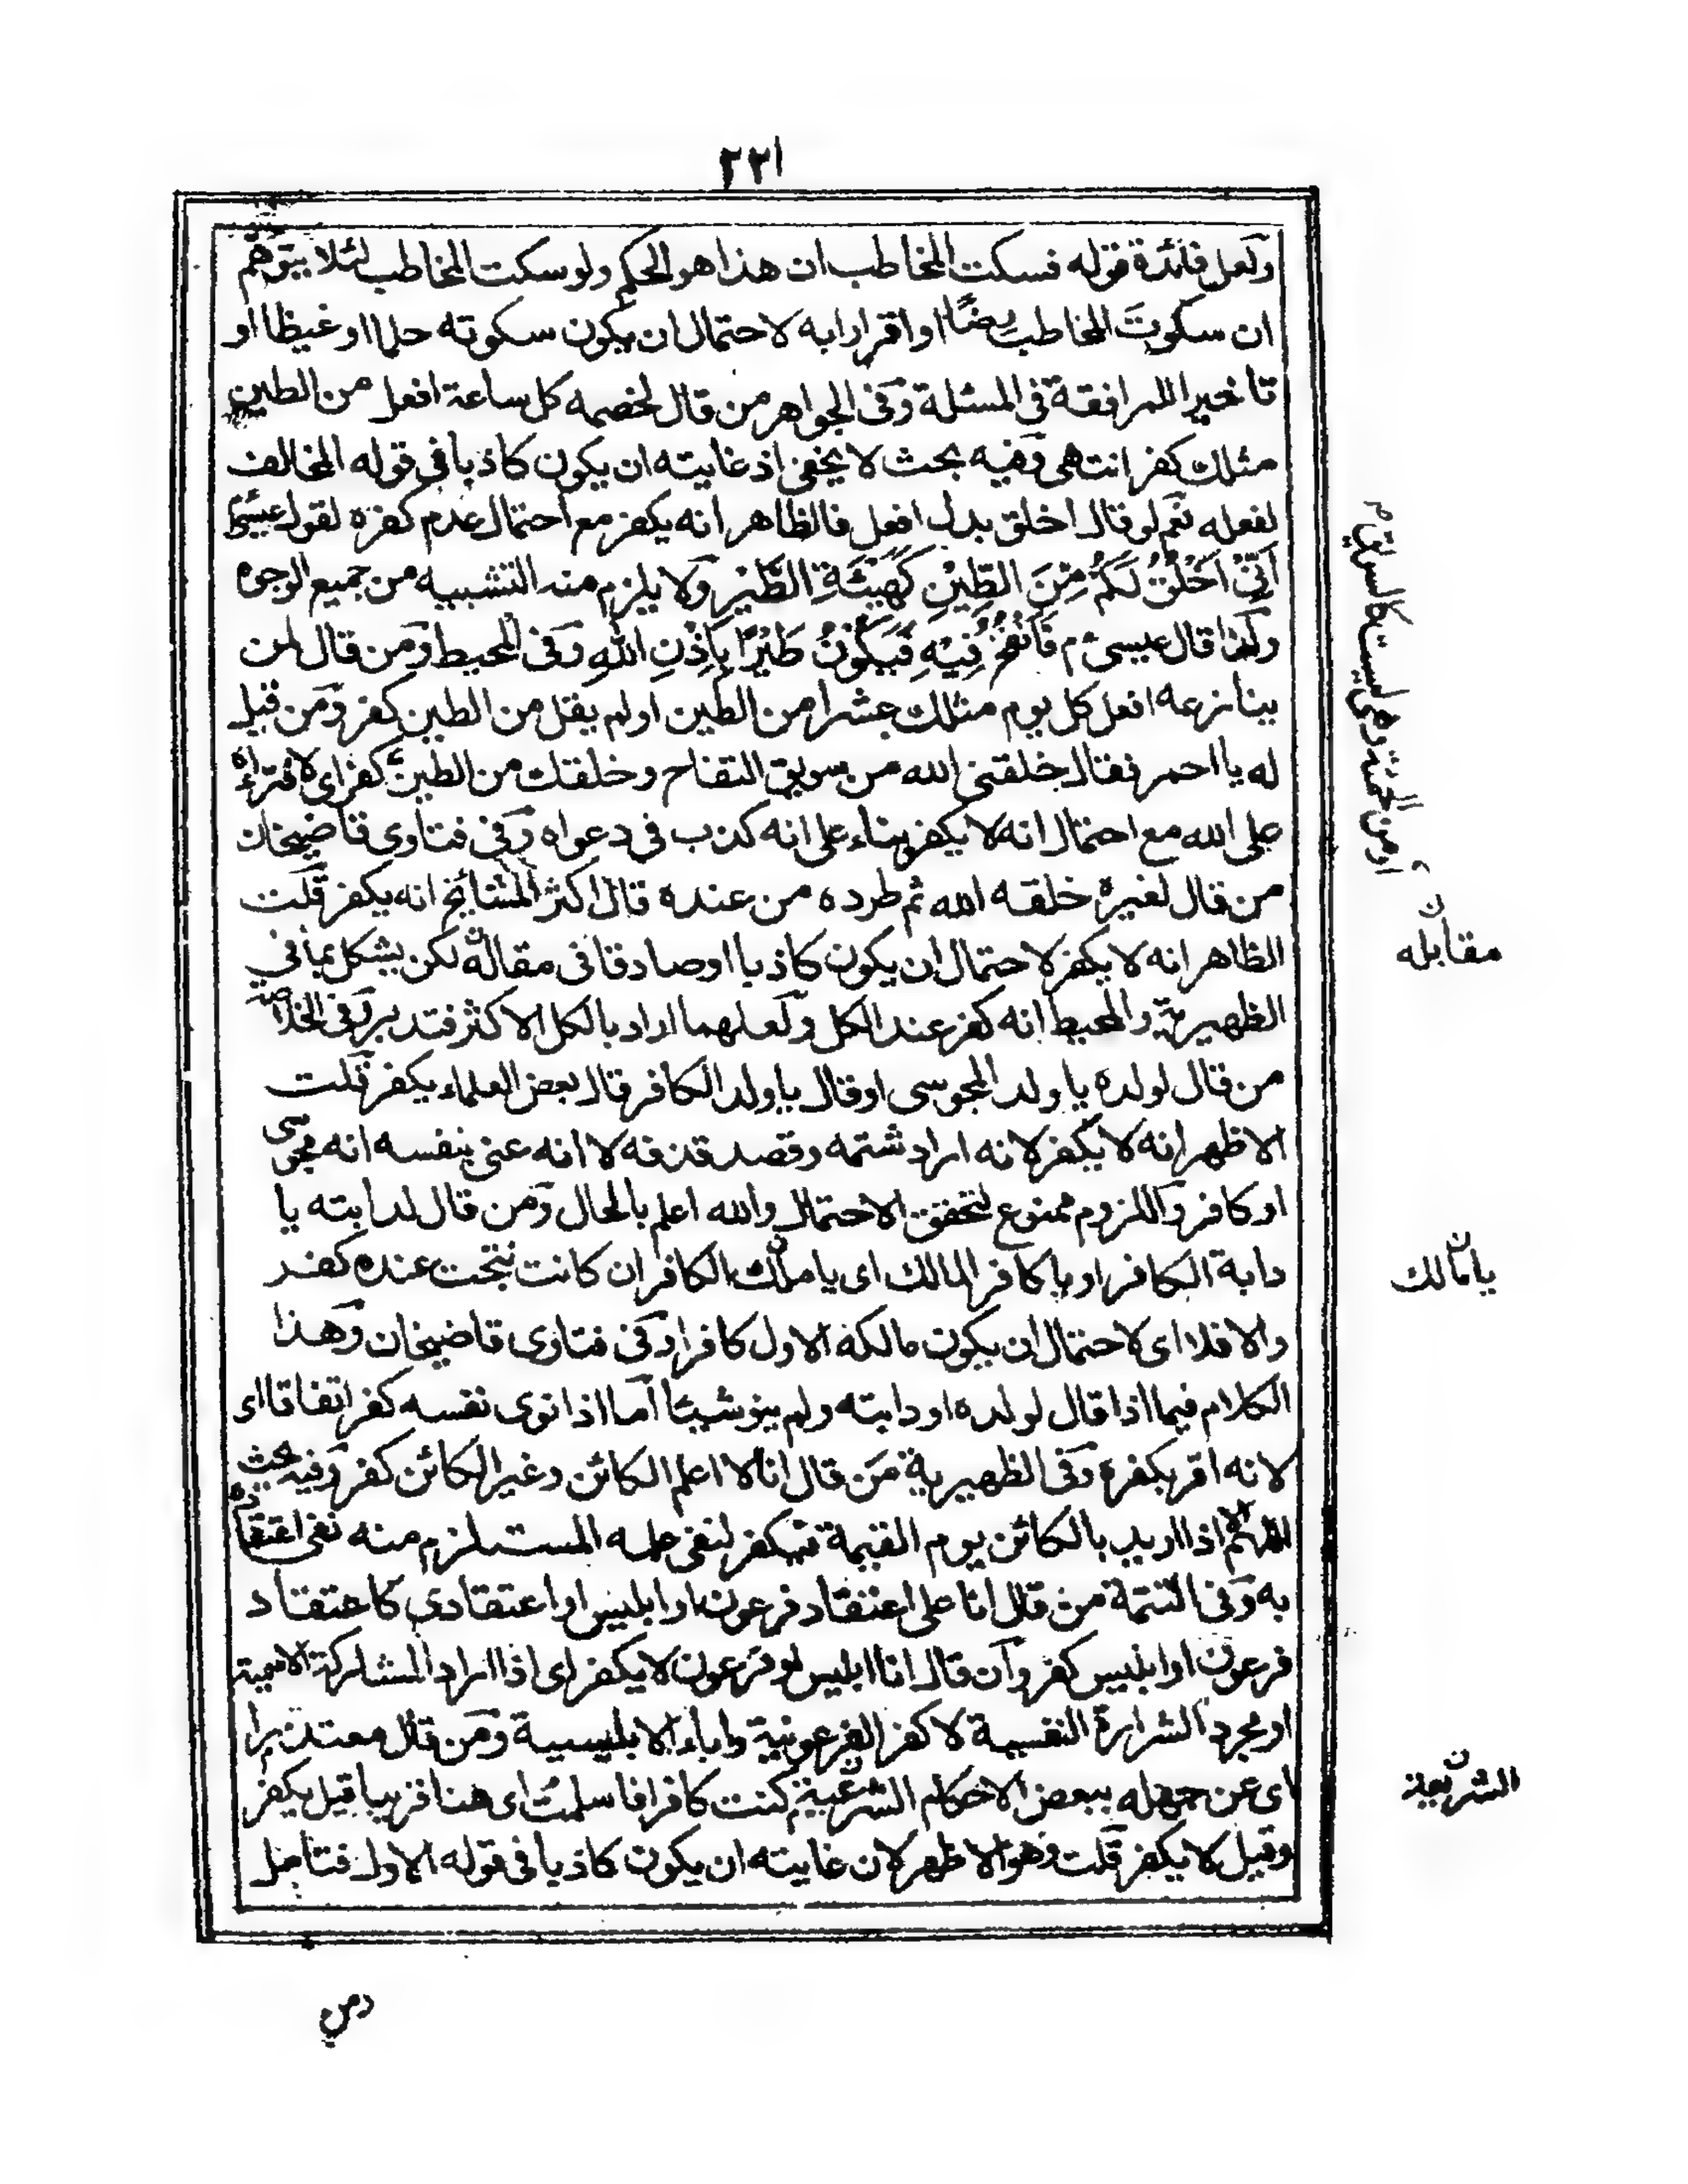 ٢٢١
ولعل فائدة قوله فسكت المخاطب ان هذا هو الحكم ولو سكت المخاطب لئلا يتوهم
ان سكوت المخاطب رضًا او اقرارا به لاحتمال ان يكون سكوته حلما او غيظا او
تاخيرا للمرافقة في المسئلة وفى الجواهر من قال لخصمه كل ساعة افعل من الطين
مثلك كفر انتهى وفيه بحث لا يخفى اذ غايته ان يكون كاذبا في قوله المخالف
لفعله نعم لو قال اخلق بدل افعل فالظاهر انه يكفر مع احتمال عدم كفره لقول عيسى
اَنِّىْ اَخْلُقُ لَكُمْ مِنَ الطِّيْنِ كَهَيْئَةِ الطَّيْرِ ولا يلزم منه التشبيه من جميع الوجوه
ولذا قال عيسى ٤م فَاَنْفُخُ فِيْهِ فَيَكُوْنُ طَيْرًا بِاِذْنِ اللّٰهِ وفى المحيط ومن قال لمن
ينازعه افعل كل يوم مثلك عشرا من الطين او لم يقل من الطين كفر ومن قيل
له يا احمر فقال خلقنى الله من سويق التفاح وخلقتك من الطين كفر اى لافترائه
على الله مع احتمال انه لا يكفر بناء على انه كذب في دعواه وفى فتاوى قاضيخان
من قال لغيره خلقه الله ثم طرده من عنده قال اكثر المشائخ انه يكفر قلت
الظاهر انه لا يكفر لاحتمال ان يكون كاذبا او صادقا فى مقاله لكن يشكل بما في
الظهيرية والمحيط انه كفر عند الكل ولعلهما اراد بالكل الاكثر فتدبر وفى الخلاصة
من قال لولده يا ولد المجوسى او قال يا ولد الكافر قال بعض العلماء يكفر قلت
الاظهر انه لا يكفر لانه اراد شتمه وقصد قذفه لا انه عنى بنفسه انه مجوسى
او كافر واللزوم ممنوع لتحقق الاحتمال والله اعلم بالحال ومن قال لدابته يا
دابة الكافر او يا كافر المالك اى يا ملك الكافر ان كانت نتجت عنده كفر
والا فلا اى لاحتمال ان يكون مالكه الاول كافرا وفى فتاوى قاضيخان وهذا
الكلام فيما اذا قال لولده او دابته ولم ينو شيئا اما اذا نوى نفسه كفر اتفاقا اى
لانه اقر بكفره وفى الظهيرية من قال انا لا اعلم الكائن وغير الكائن كفر وفيه بحث
اللهم الا اذا اريد بالكائن يوم القيمة فيكفر لنفى علمه المستلزم منه نفى اعتقاده
به وفى التتمة من قال انا على اعتقاد فرعون او ابليس او اعتقادى كاعتقاد
فرعون او ابليس كفر وان قال انا ابليس او فرعون لا يكفر اى اذا اراد المشاركة الاسمية
او مجرد الشرارة النفسية لا كفر الفرعونية واباء الابليسية ومن قال معتذرا
اى عن جهله ببعض الاحكام الشرعية كنت كافرا فاسلمت اى هنا قريبا قيل يكفر
وقيل لا يكفر قلت وهو الاظهر لان غايته ان يكون كاذبا فى قوله الاول فتامل
مقابله ن
يا مالك ن
الشريعية ن
ومن